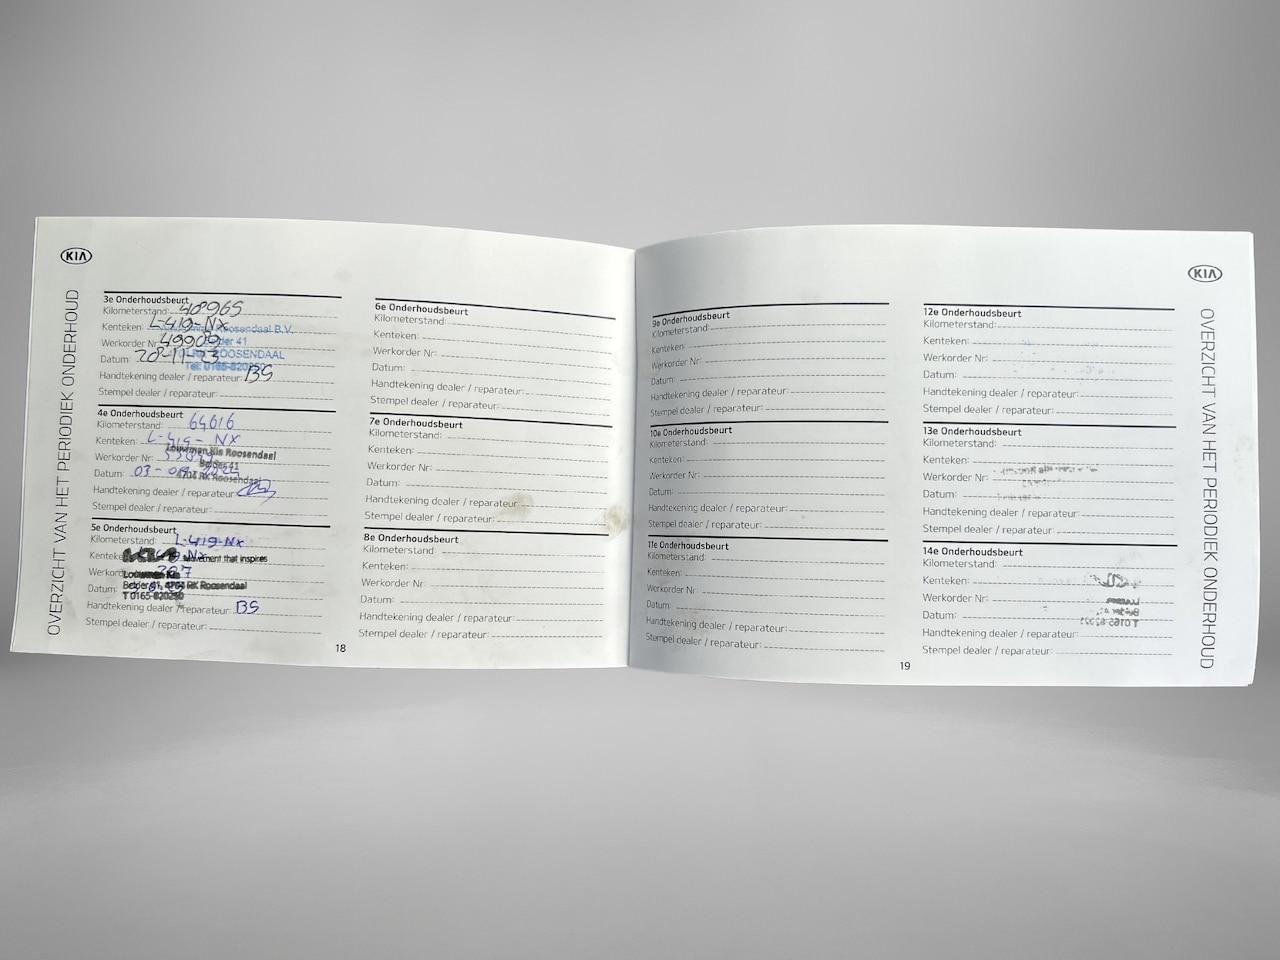 KIA
OVERZICHT VAN HET PERIODIEK ONDERHOUD
3e Onderhoudsbeurt
Kilometerstand: 48965
Kenteken: L-419-NX
Roosendaal B.V.
Werkorder Nr: 49909
41
Datum: 20-11-23
ROOSENDAAL
Tel: 0165-820250
Handtekening dealer / reparateur: BS
Stempel dealer / reparateur:
4e Onderhoudsbeurt
Kilometerstand: 64616
Kenteken: L-419-NX
Louwman Kia Roosendaal
Werkorder Nr:
Belder 41
Datum: 03-
4704 RK Roosendaal
Handtekening dealer / reparateur:
Stempel dealer / reparateur:
5e Onderhoudsbeurt
Kilometerstand: L-419-NX
Kenteken:
Movement that inspires
Louwman Kia
Datum:
Belder 41, 4704 RK Roosendaal
T 0165-820250
Handtekening dealer / reparateur: BS
Stempel dealer / reparateur:
6e Onderhoudsbeurt
Kilometerstand:
Kenteken:
Werkorder Nr:
Datum:
Handtekening dealer / reparateur:
Stempel dealer / reparateur:
7e Onderhoudsbeurt
Kilometerstand:
Kenteken:
Werkorder Nr:
Datum:
Handtekening dealer / reparateur:
Stempel dealer / reparateur:
8e Onderhoudsbeurt
Kilometerstand:
Kenteken:
Werkorder Nr:
Datum:
Handtekening dealer / reparateur:
Stempel dealer / reparateur:
18
9e Onderhoudsbeurt
Kilometerstand:
Kenteken:
Werkorder Nr:
Datum:
Handtekening dealer / reparateur:
Stempel dealer / reparateur:
10e Onderhoudsbeurt
Kilometerstand:
Kenteken:
Werkorder Nr:
Datum:
Handtekening dealer / reparateur:
Stempel dealer / reparateur:
11e Onderhoudsbeurt
Kilometerstand:
Kenteken:
Werkorder Nr:
Datum:
Handtekening dealer / reparateur:
Stempel dealer / reparateur:
12e Onderhoudsbeurt
Kilometerstand:
Kenteken:
Werkorder Nr:
Datum:
Handtekening dealer / reparateur:
Stempel dealer / reparateur:
13e Onderhoudsbeurt
Kilometerstand:
Kenteken:
Werkorder Nr:
Datum:
Handtekening dealer / reparateur:
Stempel dealer / reparateur:
14e Onderhoudsbeurt
Kilometerstand:
Kenteken:
Werkorder Nr:
Datum:
Handtekening dealer / reparateur:
Stempel dealer / reparateur:
19
KIA
OVERZICHT VAN HET PERIODIEK ONDERHOUD